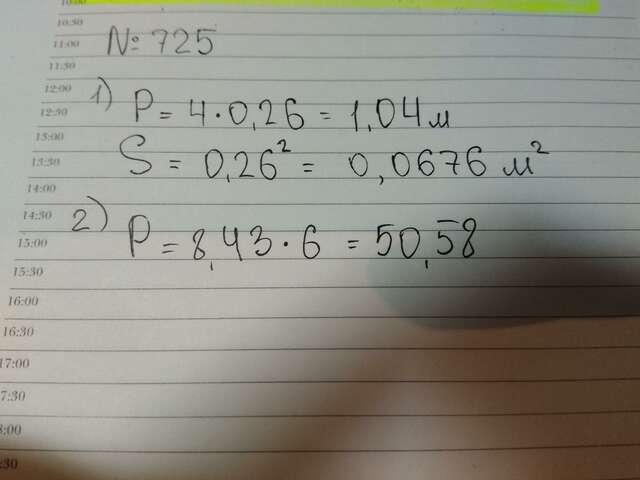 10:00
10:30
11:00 № 725
11:30
12:00
12:30 1) P = 4 · 0,26 = 1,04 м
13:00
13:30 S = 0,26² = 0,0676 м²
14:00
14:30
15:00 2) P = 8,43 · 6 = 50,58
15:30
16:00
16:30
17:00
7:30
8:00
:30